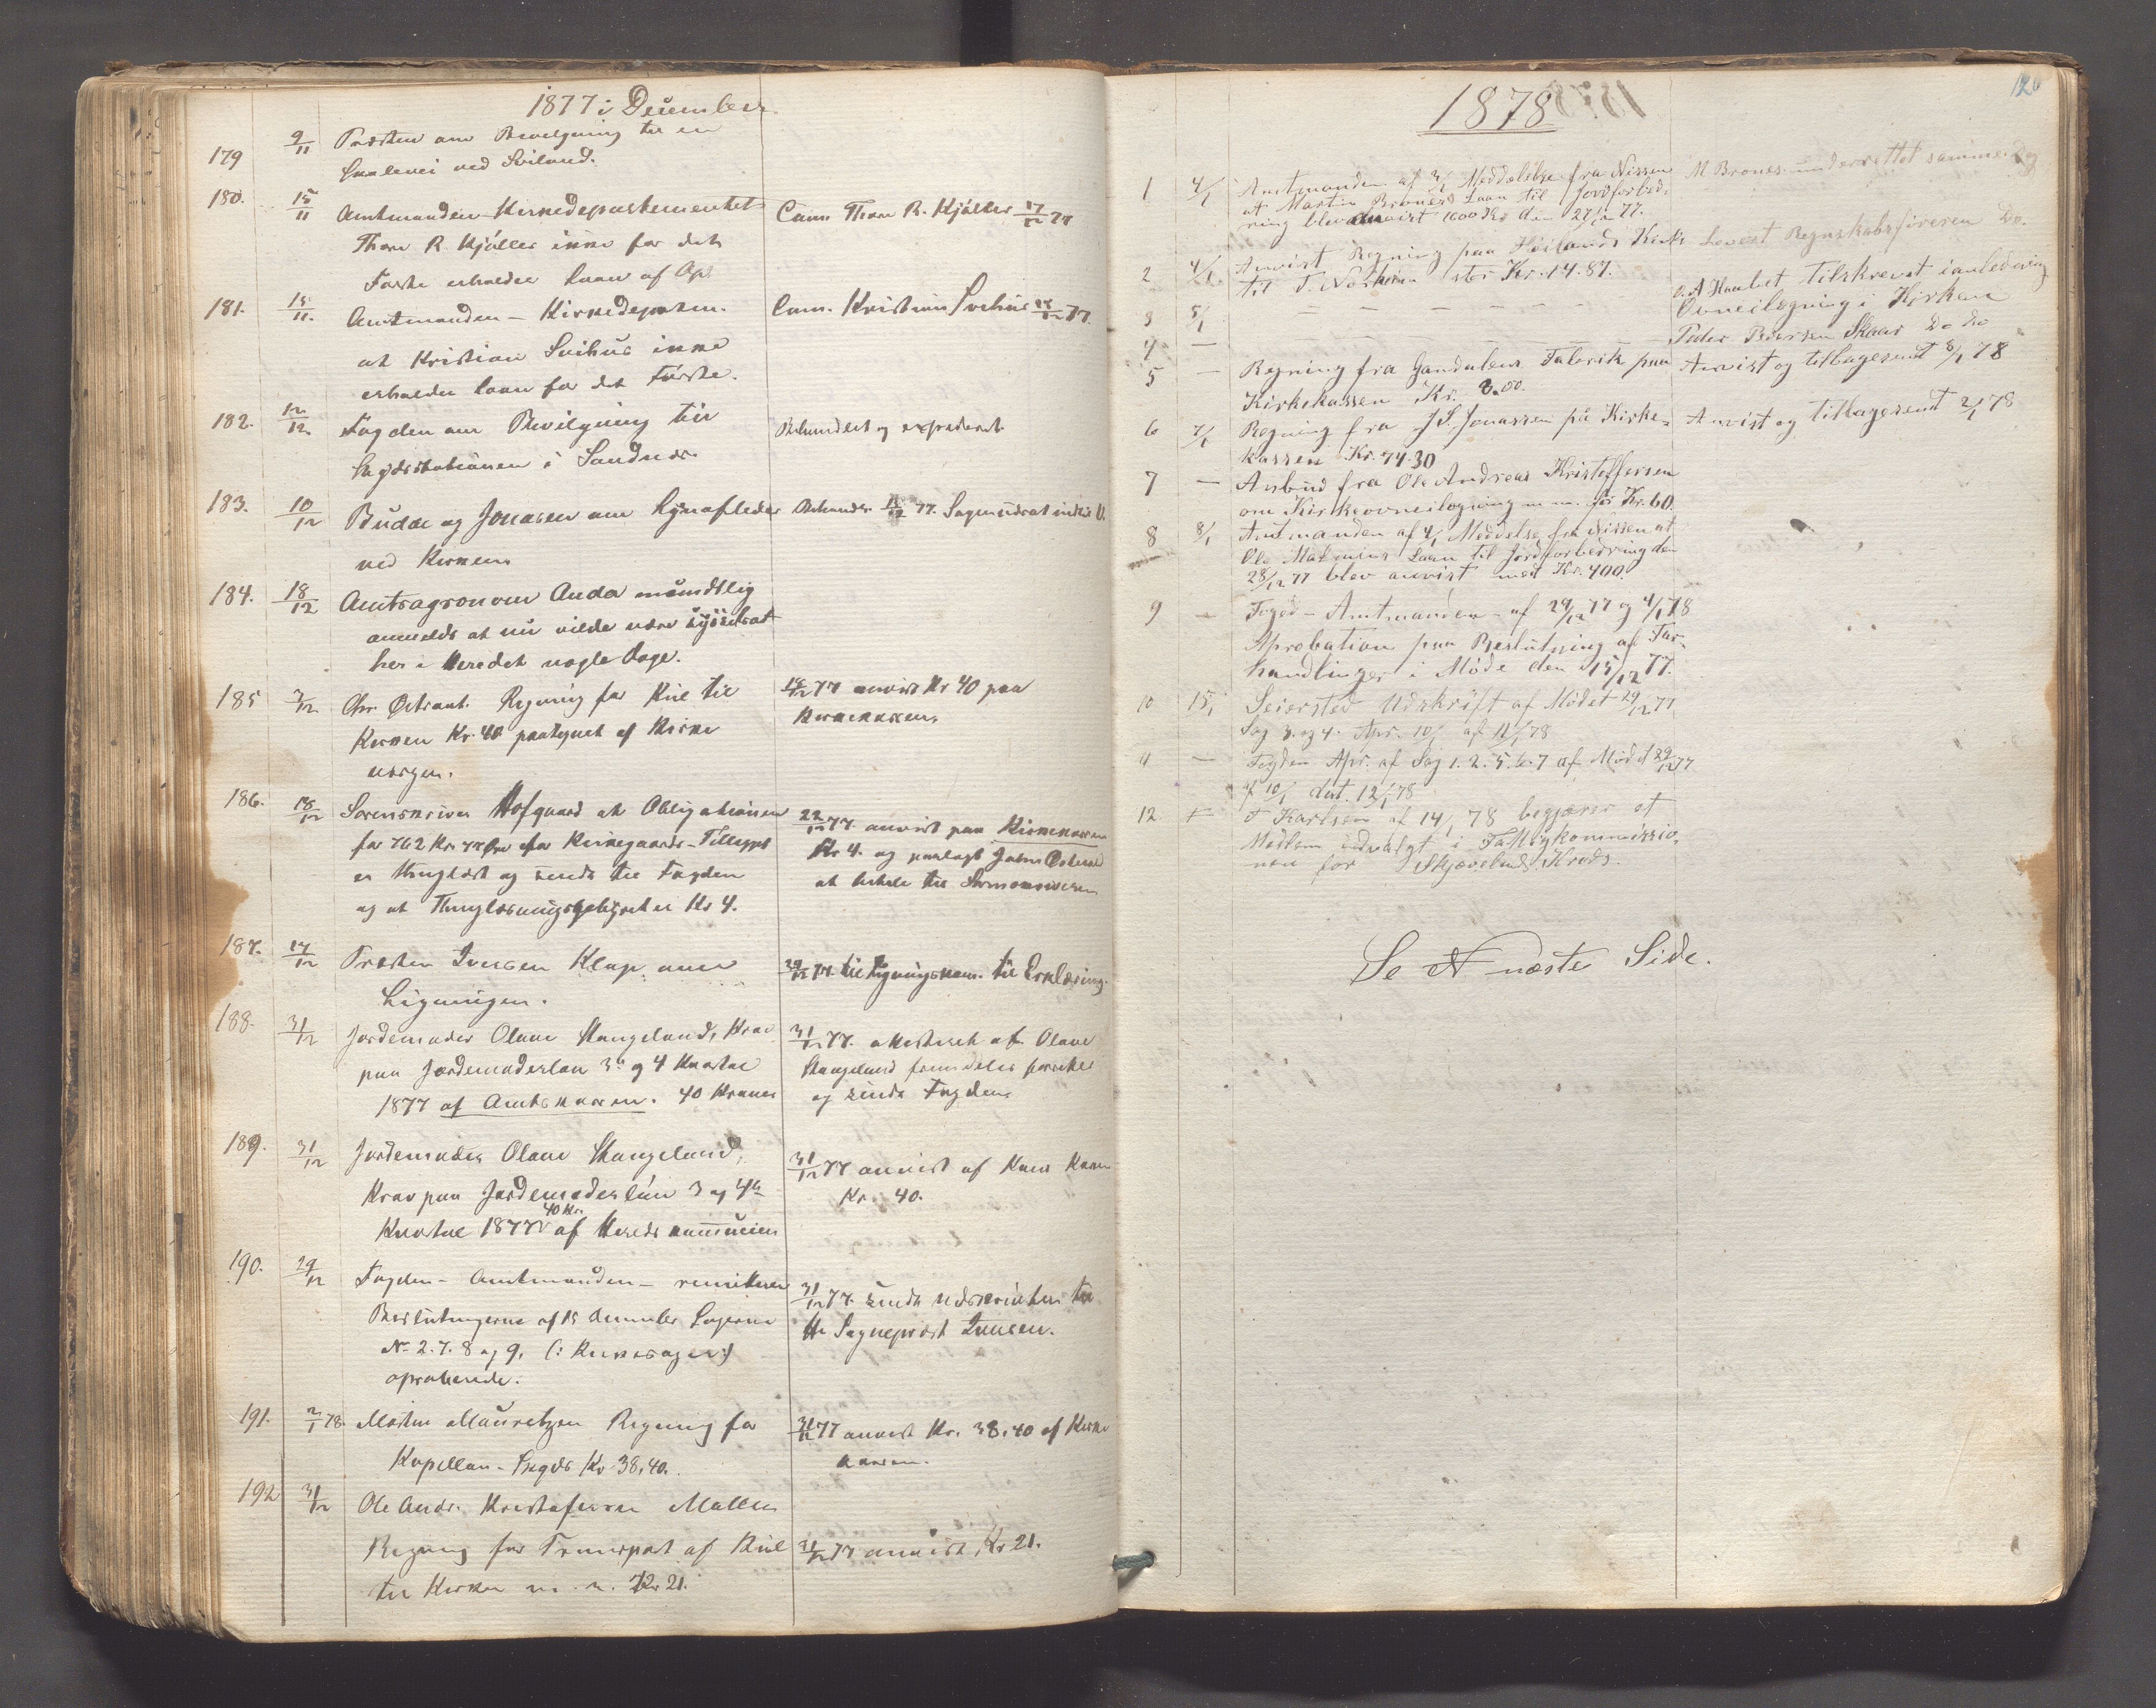 1877 i December
179 9/11 Præsten om Bevilgning til en
ved Sviland.
180. 15/11 Amtmanden - Kirkedepartementet
Thore R. Kjøller ikke for det
Første erholder Laan af Op.
Com. Thore R. Kjøller 17/12 77
181. 15/11. Amtmanden - Kirkedeparten.
at Kristian Svihus ikke
erholder Laan for det Første.
Com. Kristian Svihus 17/12 77.
182. 12/12 Fogden om Bevilgning til
i Sandnes.
Behandlet og expederet
183. 10/12 Budde og Jonasen om Lynafleder
ved Kirken
184. 18/12 Amtsagronom Anda mundtlig
anmeldt at nu vilde være
her i Heredet nogle Dage.
185 2/12 Chr. Østraat. Regning for Kul til
Kirken Kr. 40 paategnet af Kirke
værgen.
18/12 77 anvist Kr 40 paa
Kirkekassen.
186. 18/12 Sorenskriver Hofgaard at Obligationen
for 762 Kr. for Kirkegaards-Tillægget
er thinglæst og sendt til Fogden
og at Thinglæsningsgebyret er Kr 4.
22/12 77. anvist paa Kirkekassen
Kr 4. og paalagt
at betale til Sorenskriveren
187. 17/12 Præsten Iversen Klep om
Ligningen.
29/12 77. til Ligningskom. til Erklæring.
188. 31/12 Jordemoder Olane Stangeland, Krav
paa Jordemoderløn 3 og 4 Kvartal
1877 af Amtskassen. 40 Kroner
31/12 77. attesteret at Olane
Stangeland fremdeles
og sendt Fogden
189. 31/12 Jordemoder Olane Stangeland,
Krav paa Jordemoderløn 3 og 4de
Kvartal 1877 40 Kr. af Hereds kommunen
31/12 77 anvist af Kom Kassen
Kr. 40.
190. 29/12 Fogden - Amtmanden - remitterer
Beslutningerne af 15 December Sagerne
No 2. 7. 8 og 9, (: Kirkesager :)
aproberede.
31/12 77. sendt Udskriften til
Hr Sognepræst Iversen.
191. 2/1 78. Martin Mauritzen Regning for
Kapellan-Skyds Kr 38,40.
31/12 77 anvist Kr. 38,40 af Kirke
kassen.
192 31/12 Ole Andr. Kristofersen Malles
Regning for Transport af Kul
til Kirken m. m. Kr 21.
31/12 77 anvist Kr 21.
120
1878
1 4/1 Amtmanden af 3/1 Meddelelse fra Nissen
at Martin Brones's Laan til Jordforbed-
ring blev anvist 1000 Kr den 27/12 77.
M Brones underrettet samme Dag
2 4/1 Anvist Regning paa Høilands Kirke
til T. stor Kr. 14.87.
Regnskabsføreren Do.
3 5/1 — — — — —
Tilskrevet i anledning
Ovneilægning i Kirken
4 — Peder Pedersen Skaar Do Do
5 — Regning fra Gandalens Fabrik paa
Kirkekassen Kr. 8.00.
Anvist og tilbagesendt 8/1 78
6 7/1 Regning fra J. S. Jonassen på Kirke-
kassen Kr. 74.30
Anvist og tilbagesendt 2/1 78
7 — Anbud fra Ole Andreas Kristoffersen
om Kirkeovneilægning m.m. for Kr. 60.
8 8/1 Amtmanden af 4/1 Meddelelse fra Nissen at
Ole Malmins Laan til Jordforbedring den
28/12 77 blev anvist med Kr. 400.
9 — Foged - Amtmanden - af 29/12 77 og 4/1 78
Aprobation paa Beslutning af For-
handlinger i Møde den 15/12 77.
10 15/1 Seiersted Udskrift af Mødet 29/12 77
Sag 3. og 4. Apr. 10/1 af 12/1 78
11 — Fogden Apr. af Sag 1. 2. 5. 6. 7 af Mødet 29/12 77
af 10/1 dat. 12/1 78
12 — T Karlsen af 14/1 78 begjærer et
Medlem udvalgt i Fattigkommissio-
nen for Skjævelands Kreds.
Se N næste Side.